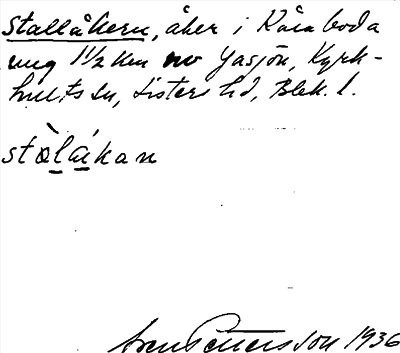 Stallåkern, åker i Råaboda
ung 1½ km nv Gasjön, Kyrk-
hults sn, Listers hd, Blek. l.
stàlákan
Sven Pettersson 1936